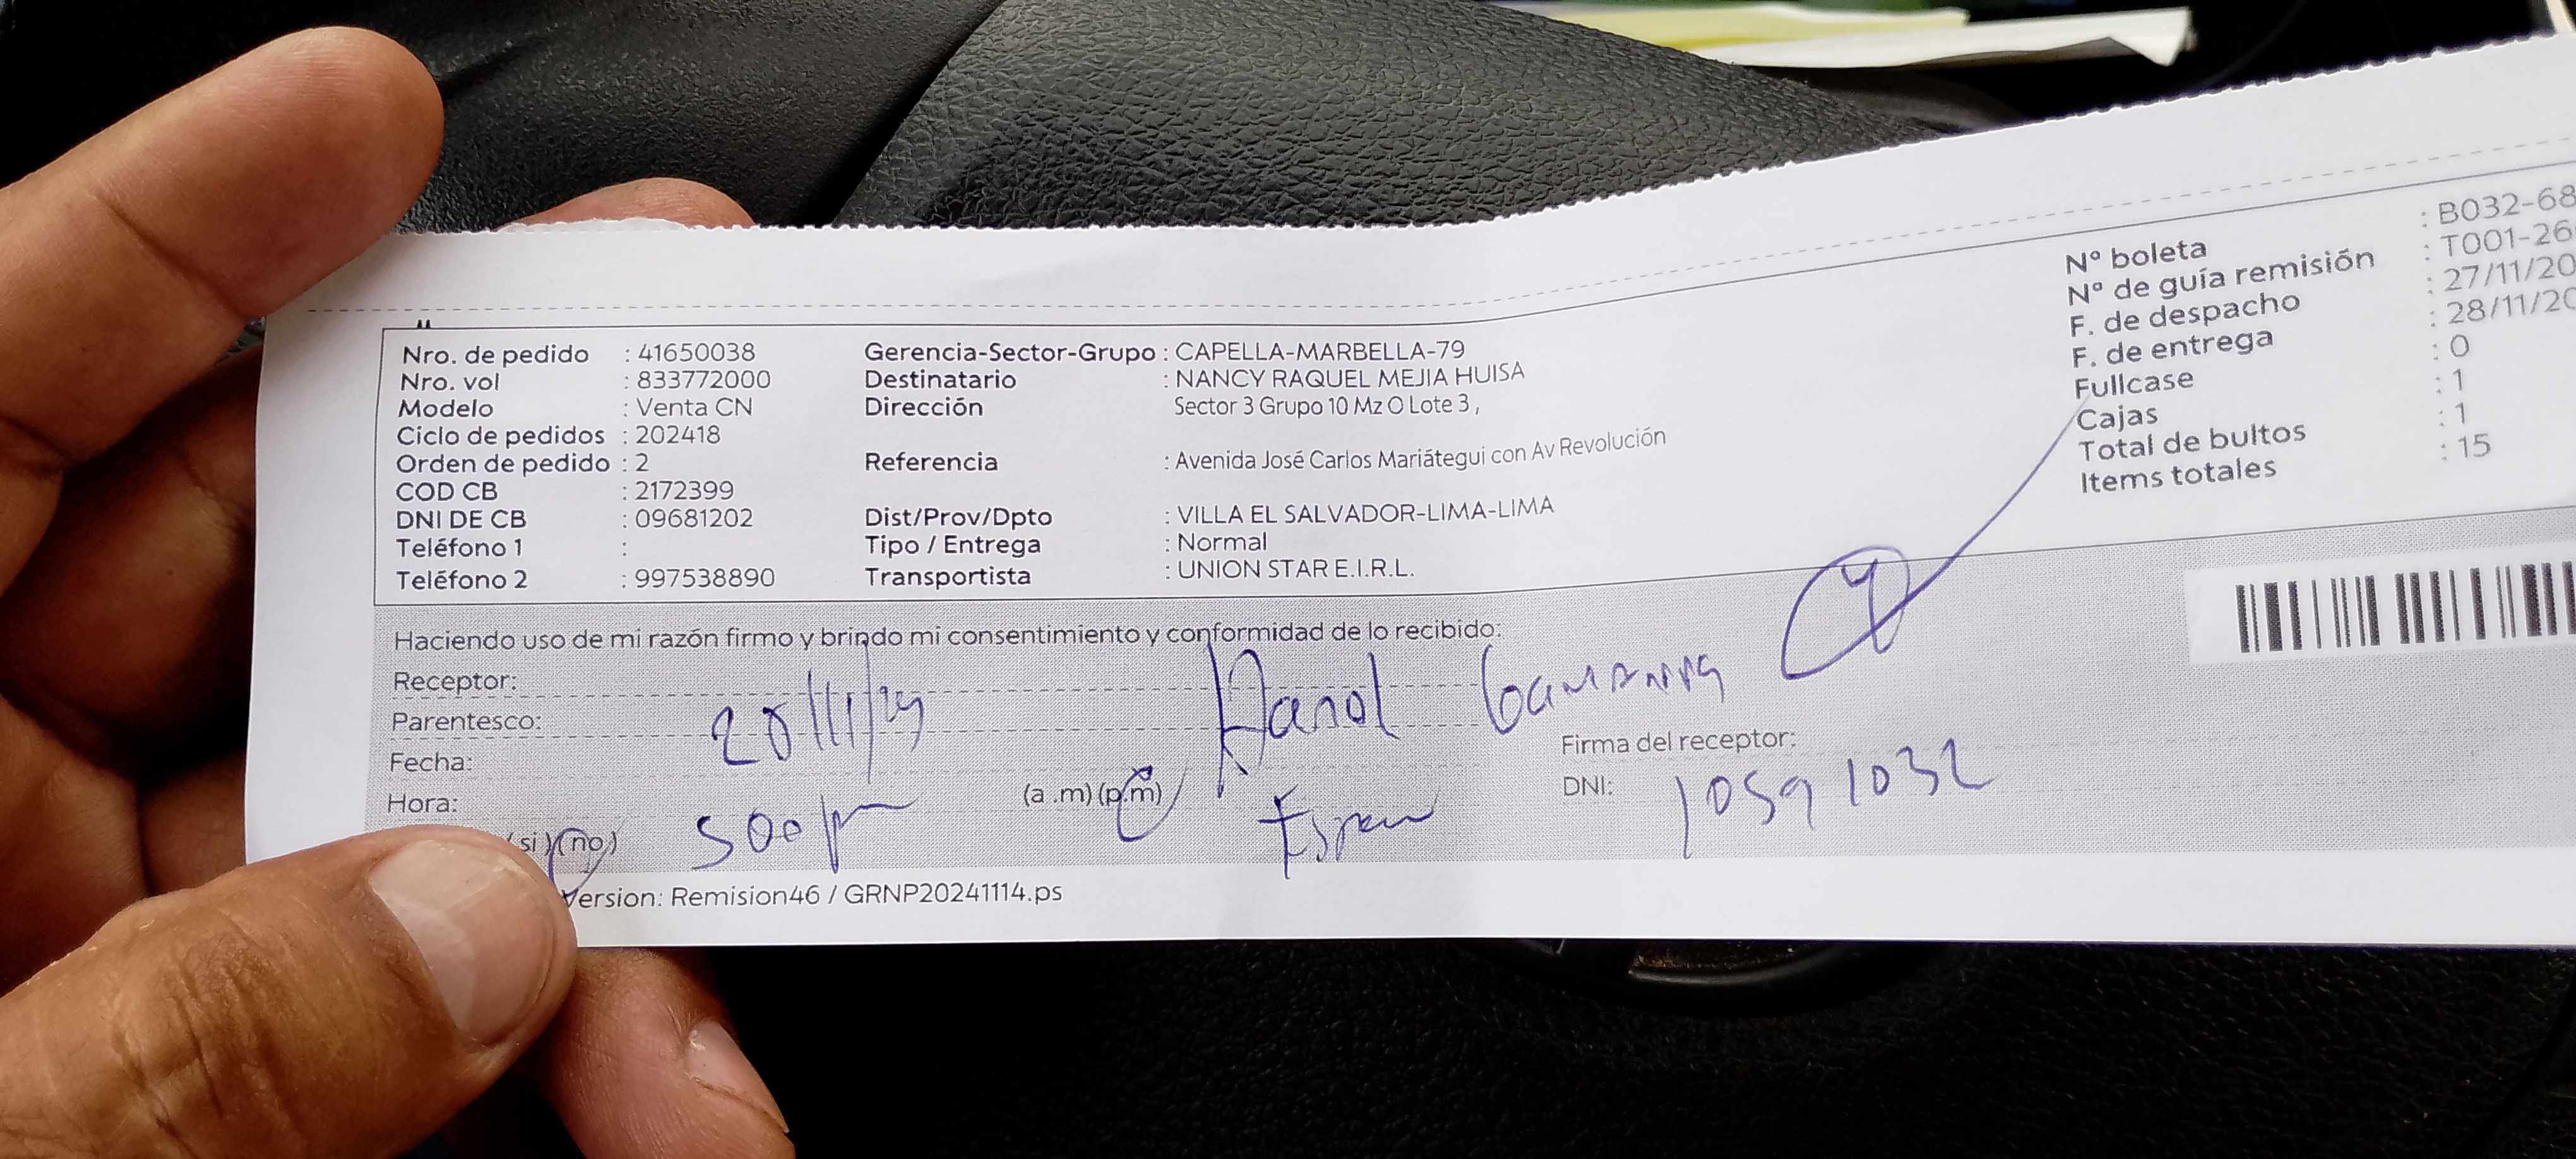 Nro. de pedido : 41650038
Nro. vol : 833772000
Modelo : Venta CN
Ciclo de pedidos : 202418
Orden de pedido : 2
COD CB : 2172399
DNI DE CB : 09681202
Teléfono 1 :
Teléfono 2 : 997538890
Gerencia-Sector-Grupo : CAPELLA-MARBELLA-79
Destinatario : NANCY RAQUEL MEJIA HUISA
Dirección Sector 3 Grupo 10 Mz O Lote 3 ,
Referencia : Avenida José Carlos Mariátegui con Av Revolución
Dist/Prov/Dpto : VILLA EL SALVADOR-LIMA-LIMA
Tipo / Entrega : Normal
Transportista : UNION STAR E.I.R.L.
Nº boleta : B032-68
Nº de guía remisión : T001-26
F. de despacho : 27/11/20
F. de entrega : 28/11/20
Fullcase : 0
Cajas : 1
Total de bultos : 1
Items totales : 15
Haciendo uso de mi razón firmo y brindo mi consentimiento y conformidad de lo recibido:
Receptor:
Parentesco:
Fecha:
Hora: 500pm (a .m) (p.m)
Firma del receptor:
DNI: 10591032
(si) (no)
Version: Remision46 / GRNP20241114.ps